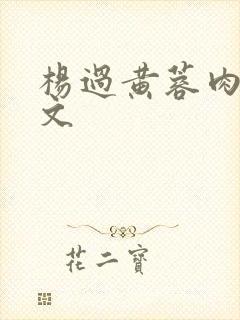 楊過黃蓉肉
文
花二寶